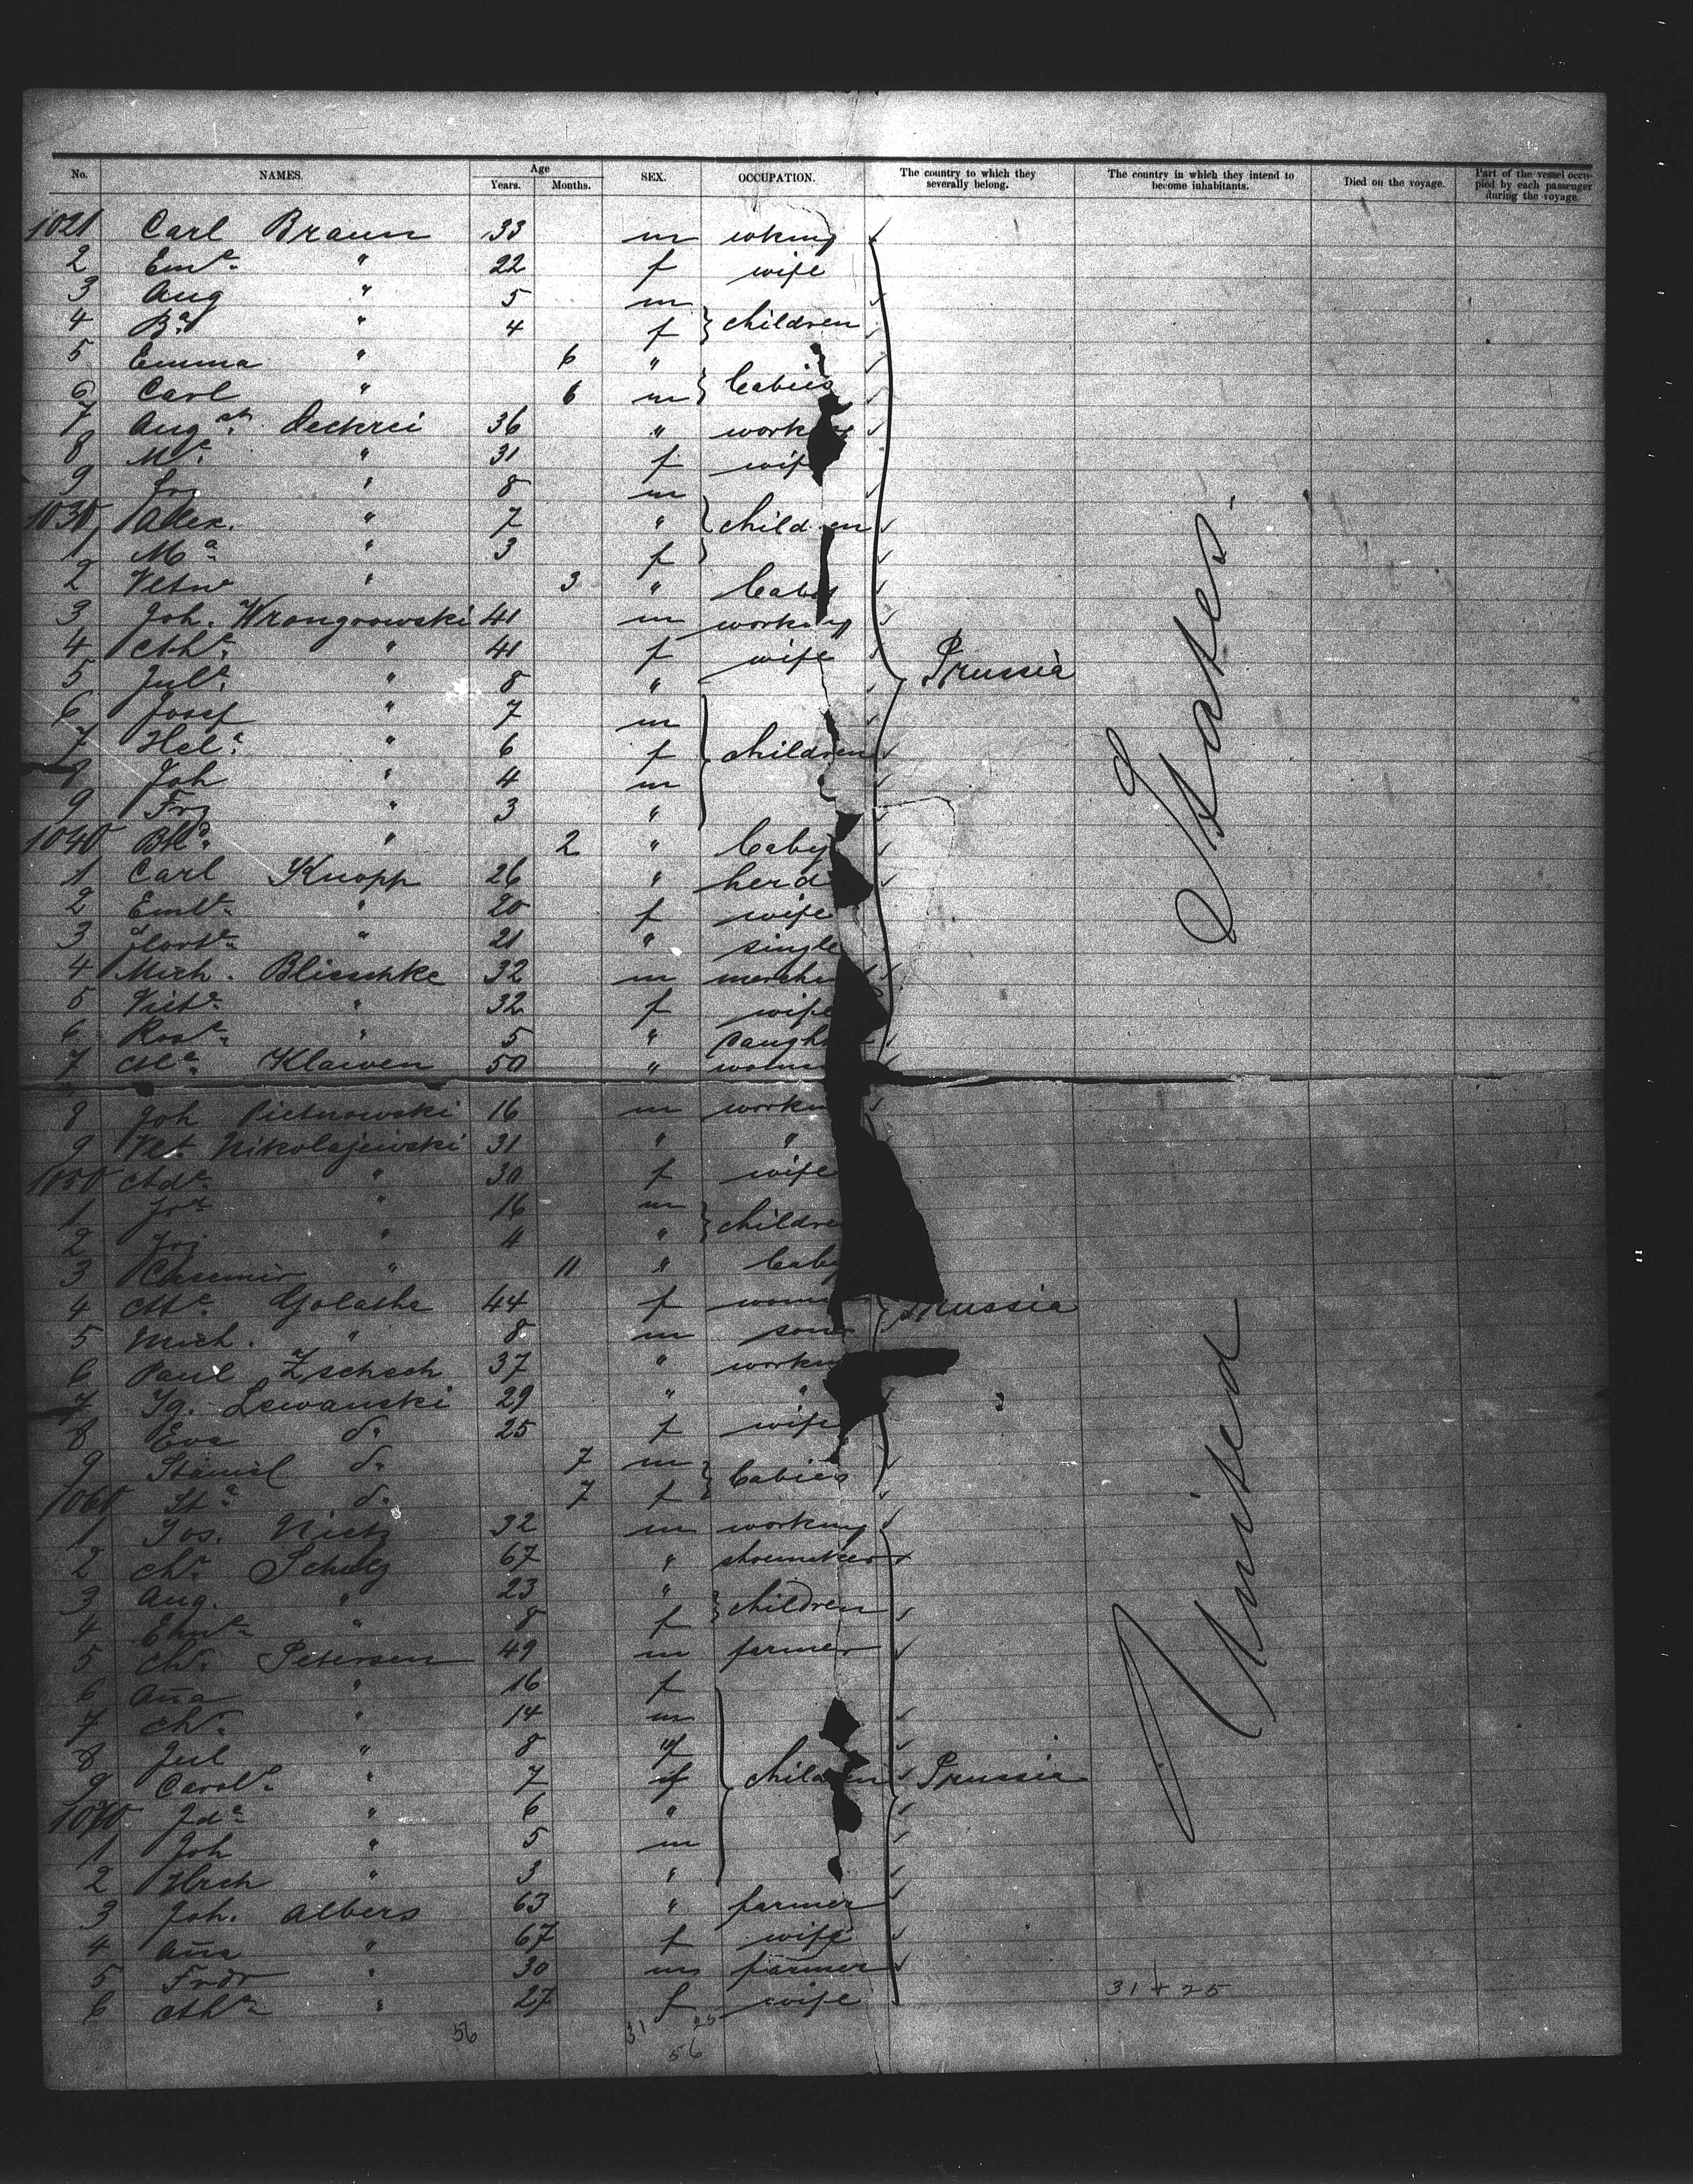 No. NAMES. Age Years. Months. SEX. OCCUPATION. The country to which they severally belong. The country in which they intend to become inhabitants. Died on the voyage. Part of the vessel occupied by each passenger during the voyage.
1021 Carl Braun 33 m wking
2 Eme " 22 f wife
3 Aug " 5 m
4 Ba " 4 f children
5 Emma " 6 "
6 Carl " 6 m babies
7 Augst 36 "
8 Me " 31 f wife
9 " 8 m
1030 Alex. " 7 " children
1 Ma " 3 f
2 " 3 " baby
3 Joh. Wrongrowski 41 m working
4 " 41 f wife Prussia
5 Jule " 8 "
6 Josef " 7 m
7 Hele " 6 f children
8 Joh " 4 m
9 Frz " 3 "
1040 " 2 " baby
1 Carl Knopp 26 " herd
2 Emle " 20 f wife
3 " 21 " single
4 Mich. Blieschke 32 m merch
5 " 32 f wife
6 Rose " 5 " Daugh
7 Klawen 50 "
8 Joh Pietrowski 16 m work
9 Nikolajewski 31 " "
1050 " 30 f wife
1 " 16 m
2 " 4 " children
3 Casemir " 11 " baby
4 44 f wom Prussia
5 Mich. " 8 m son
6 Paul Zschech 37 " workin
7 Ig. Lewanski 29 " "
8 Eva do 25 f wife
9 Stanisl do 7 m
1060 Sta do 7 f babies
1 Jos. Nietz 32 m working
2 Chr Scholz 67 " shoemaker
3 Aug. " 23 "
4 " 8 f children
5 Chr. Petersen 49 m farmer
6 Aña " 16 f
7 Chr. " 14 m
8 Jul " 8
9 Carole " 7 f children Prussia
1070 Ida " 6 "
1 Joh " 5 m
2 Hrch " 3 "
3 Joh. Albers 63 " farmer
4 Aña " 67 f wife
5 Frdr " 30 m farmer
6 " 27 f wife
United States.
31 + 25
56 31 25
56